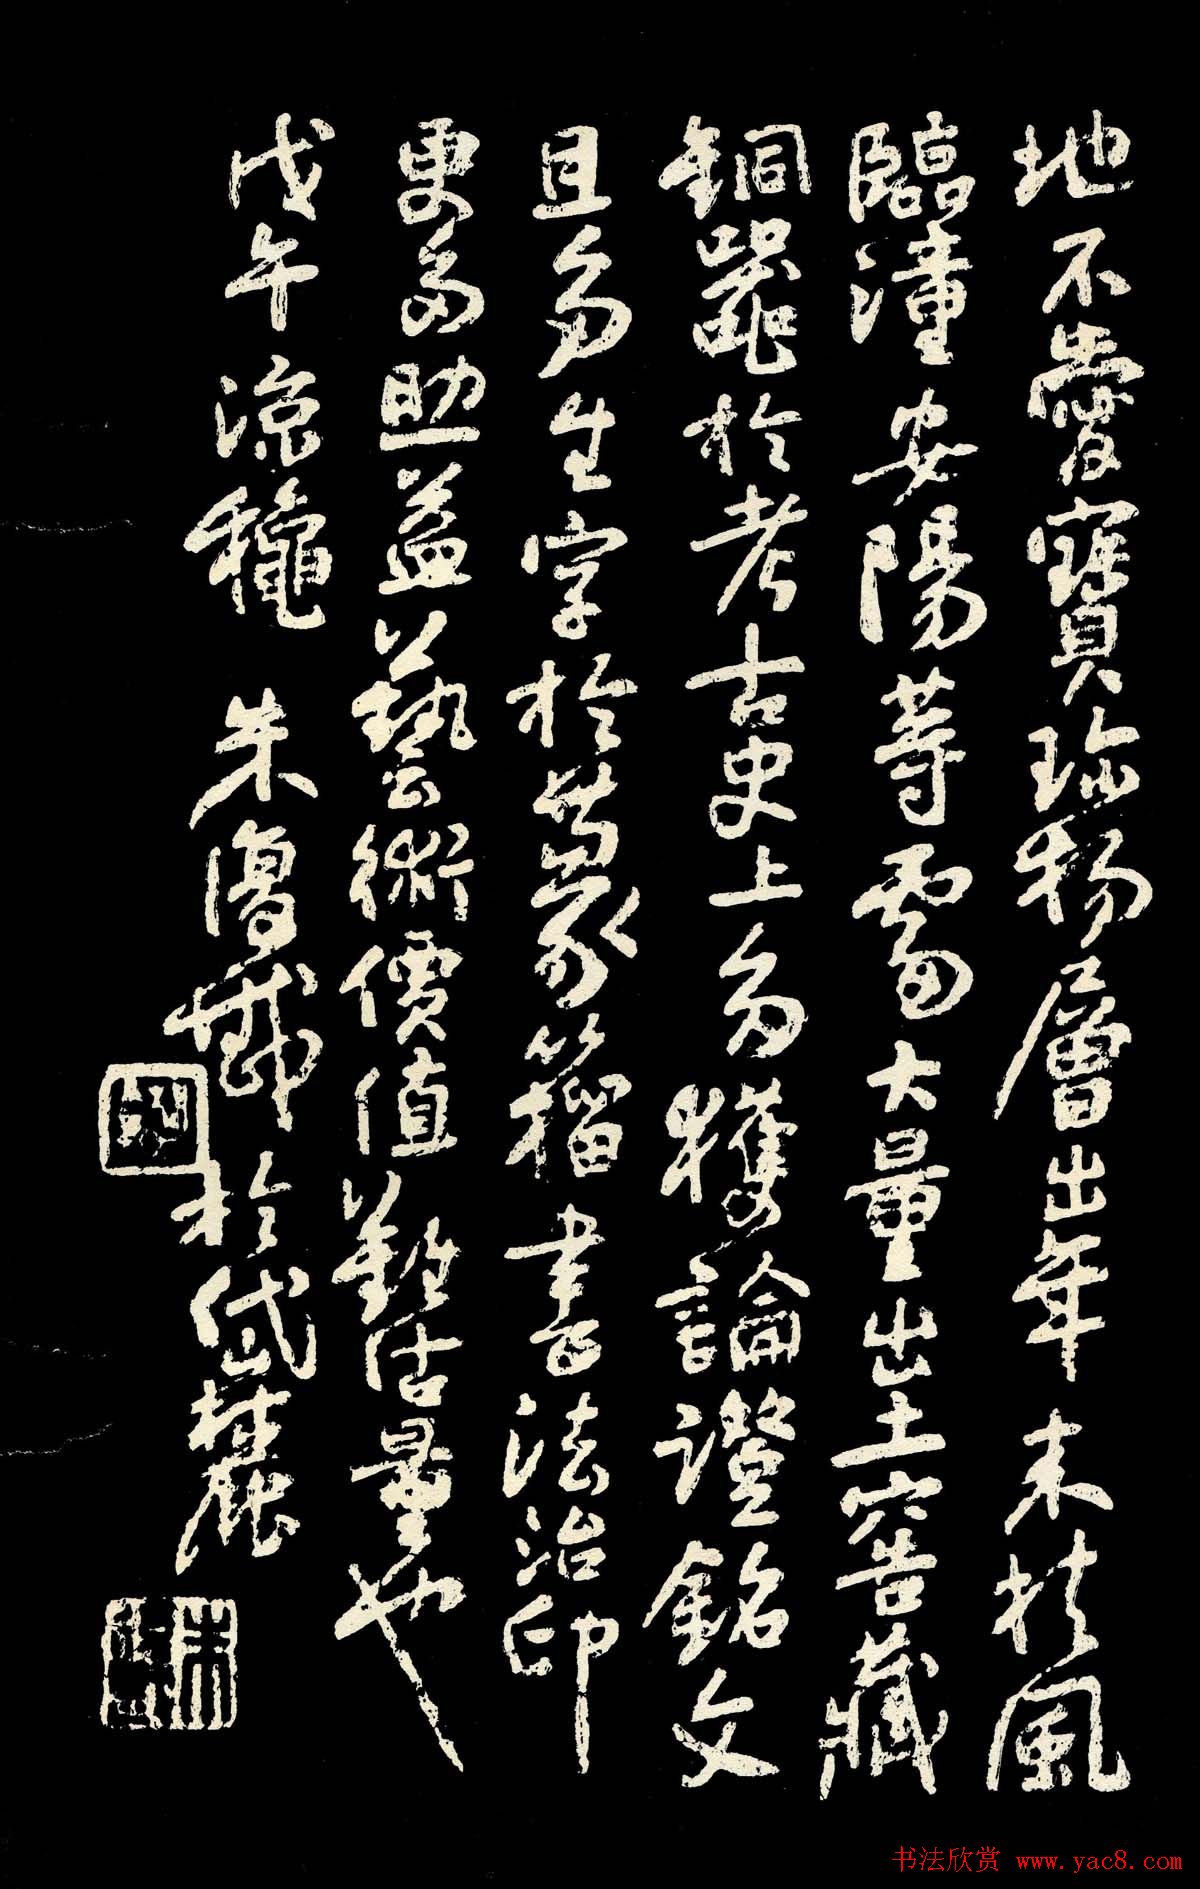 地不愛寶珍物層出年来扶風
臨潼安陽等處大量出土窖藏
銅器於考古史上多獲論證銘文
且多生字於篆籀書法治印
更多助益藝術價值難估量也
戊午涼龝 朱復戡於岱麓
朱
书法欣赏 www.yac8.com